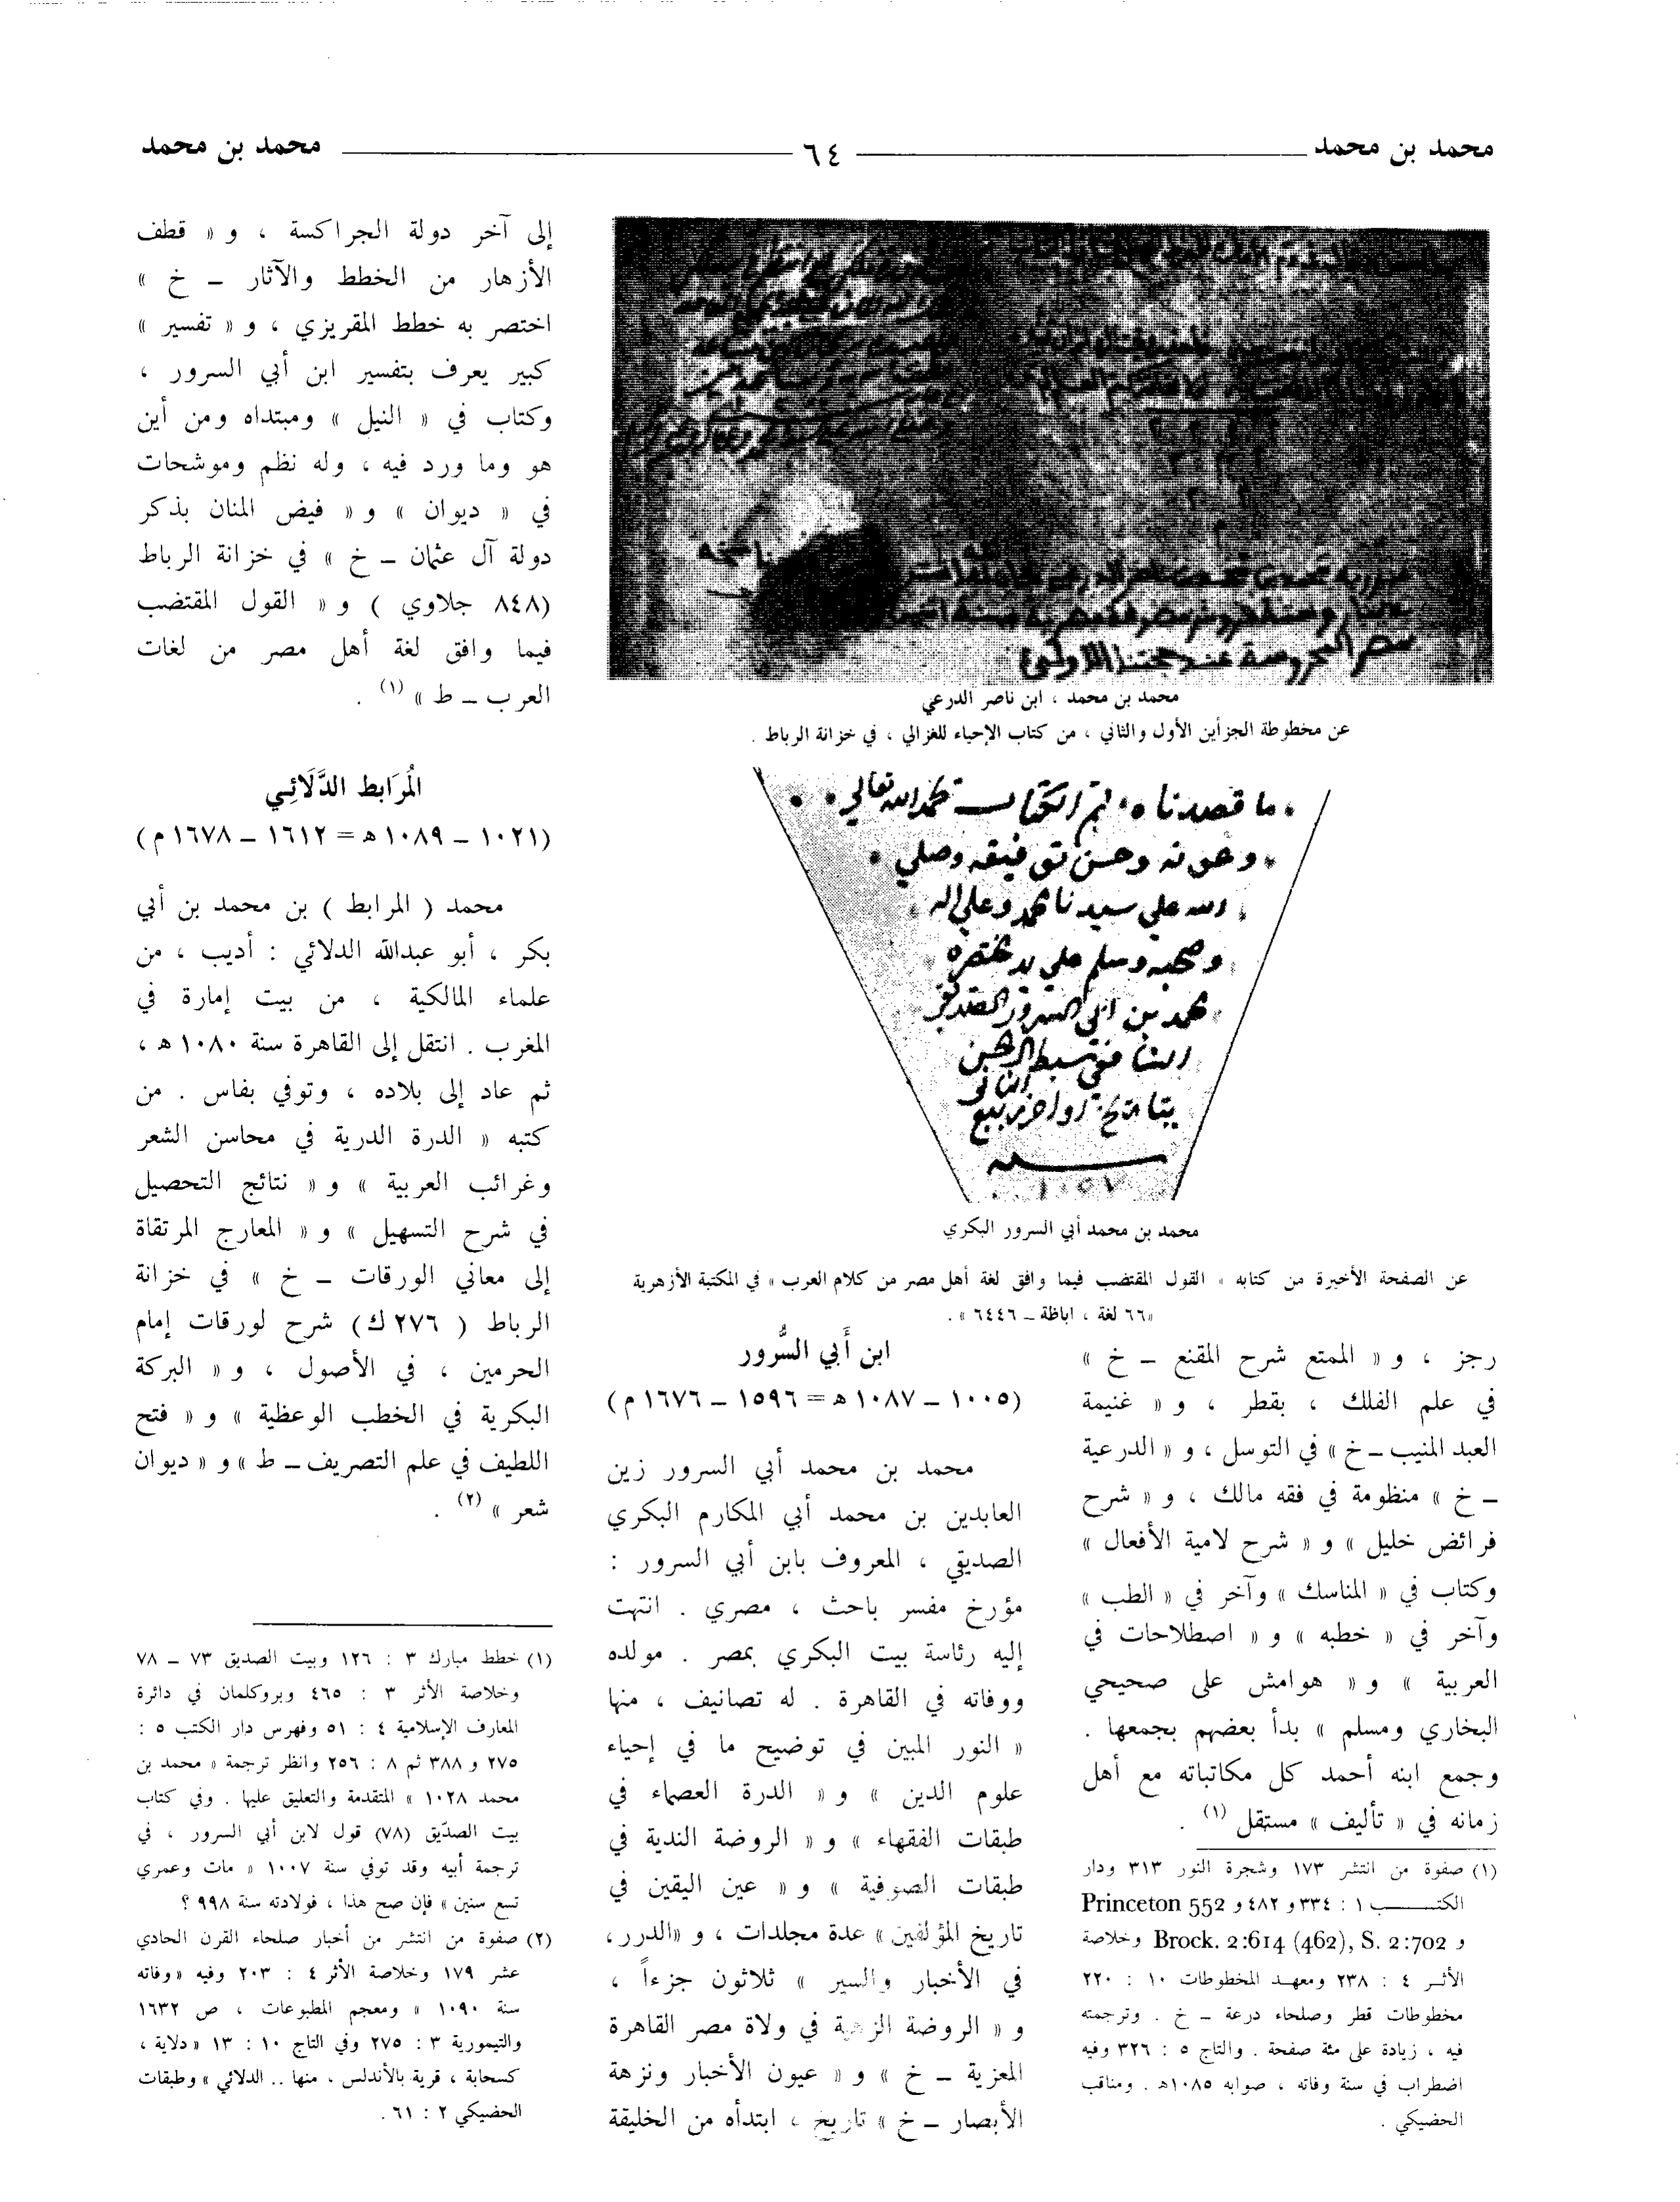 محمد بن محمد
٦٤
محمد بن محمد
محمد بن محمد ، ابن ناصر الدرعي
عن مخطوطة الجزأين الأول والثاني ، من كتاب الإحياء للغزالي ، في خزانة الرباط .
ما قصدناه ، تم الكتاب بحمد الله تعالى
وعونه وحسن توفيقه وصلي
الله علي سيدنا محمد وعلي اله
وصحبه وسلم علي يد مختصره
محمد بن ابي السرور الصديقي
الشافعي سبط ال الحسن
بتاريخ اواخر ربيع
الثاني
سنة
١٠٥٧
محمد بن محمد أبي السرور البكري
عن الصفحة الأخيرة من كتابه « القول المقتضب فيما وافق لغة أهل مصر من كلام العرب » في المكتبة الأزهرية
«٦٦ لغة ، اباظة ــ ٦٤٤٦ » .
رجز ، و « الممتع شرح المقنع ــ خ »
في علم الفلك ، بقطر ، و « غنيمة
العبد المنيب ــ خ » في التوسل ، و « الدرعية
ــ خ » منظومة في فقه مالك ، و « شرح
فرائض خليل » و « شرح لامية الأفعال »
وكتاب في « المناسك » وآخر في « الطب »
وآخر في « خطبه » و « اصطلاحات في
العربية » و « هوامش على صحيحي
البخاري ومسلم » بدأ بعضهم بجمعها .
وجمع ابنه أحمد كل مكاتباته مع أهل
زمانه في « تأليف » مستقل (١) .
(١) صفوة من انتشر ١٧٣ وشجرة النور ٣١٣ ودار
الكتب ١ : ٣٣٤ و ٤٨٢ و Princeton 552
و Brock. 2:614 (462), S. 2:702 وخلاصة
الأثر ٤ : ٢٣٨ ومعهد المخطوطات ١٠ : ٢٢٠
مخطوطات قطر وصلحاء درعة ــ خ . وترجمته
فيه ، زيادة على مئة صفحة . والتاج ٥ : ٣٢٦ وفيه
اضطراب في سنة وفاته ، صوابه ١٠٨٥هـ . ومناقب
الحضيكي .
ابن أَبي السُّرور
(١٠٠٥ ــ ١٠٨٧ هـ = ١٥٩٦ ــ ١٦٧٦ م)
محمد بن محمد أبي السرور زين
العابدين بن محمد أبي المكارم البكري
الصديقي ، المعروف بابن أبي السرور :
مؤرخ مفسر باحث ، مصري . انتهت
إليه رئاسة بيت البكري بمصر . مولده
ووفاته في القاهرة . له تصانيف ، منها
« النور المبين في توضيح ما في إحياء
علوم الدين » و « الدرة العصماء في
طبقات الفقهاء » و « الروضة الندية في
طبقات الصوفية » و « عين اليقين في
تاريخ المؤلفين » عدة مجلدات ، و «الدرر ،
في الأخبار والسير » ثلاثون جزءاً ،
و « الروضة الزهية في ولاة مصر القاهرة
المعزية ــ خ » و « عيون الأخبار ونزهة
الأبصار ــ خ » تاريخ ، ابتدأه من الخليقة
إلى آخر دولة الجراكسة ، و « قطف
الأزهار من الخطط والآثار ــ خ »
اختصر به خطط المقريزي ، و « تفسير »
كبير يعرف بتفسير ابن أبي السرور ،
وكتاب في « النيل » ومبتداه ومن أين
هو وما ورد فيه ، وله نظم وموشحات
في « ديوان » و « فيض المنان بذكر
دولة آل عثمان ــ خ » في خزانة الرباط
(٨٤٨ جلاوي ) و « القول المقتضب
فيما وافق لغة أهل مصر من لغات
العرب ــ ط » (١) .
المُرَابط الدَّلَائِي
(١٠٢١ ــ ١٠٨٩ هـ = ١٦١٢ ــ ١٦٧٨ م)
محمد ( المرابط ) بن محمد بن أبي
بكر ، أبو عبدالله الدلائي : أديب ، من
علماء المالكية ، من بيت إمارة في
المغرب . انتقل إلى القاهرة سنة ١٠٨٠ هـ ،
ثم عاد إلى بلاده ، وتوفي بفاس . من
كتبه « الدرة الدرية في محاسن الشعر
وغرائب العربية » و « نتائج التحصيل
في شرح التسهيل » و « المعارج المرتقاة
إلى معاني الورقات ــ خ » في خزانة
الرباط ( ٢٧٦ ك) شرح لورقات إمام
الحرمين ، في الأصول ، و « البركة
البكرية في الخطب الوعظية » و « فتح
اللطيف في علم التصريف ــ ط » و « ديوان
شعر » (٢) .
(١) خطط مبارك ٣ : ١٢٦ وبيت الصديق ٧٣ ــ ٧٨
وخلاصة الأثر ٣ : ٤٦٥ وبروكلمان في دائرة
المعارف الإسلامية ٤ : ٥١ وفهرس دار الكتب ٥ :
٢٧٥ و ٣٨٨ ثم ٨ : ٢٥٦ وانظر ترجمة « محمد بن
محمد ١٠٢٨ » المتقدمة والتعليق عليها . وفي كتاب
بيت الصدّيق (٧٨) قول لابن أبي السرور ، في
ترجمة أبيه وقد توفي سنة ١٠٠٧ « مات وعمري
تسع سنين » فإن صح هذا ، فولادته سنة ٩٩٨ ؟
(٢) صفوة من انتشر من أخبار صلحاء القرن الحادي
عشر ١٧٩ وخلاصة الأثر ٤ : ٢٠٣ وفيه «وفاته
سنة ١٠٩٠ » ومعجم المطبوعات ، ص ١٦٣٢
والتيمورية ٣ : ٢٧٥ وفي التاج ١٠ : ١٣ «دلاية ،
كسحابة ، قرية بالأندلس ، منها .. الدلائي » وطبقات
الحضيكي ٢ : ٦١ .